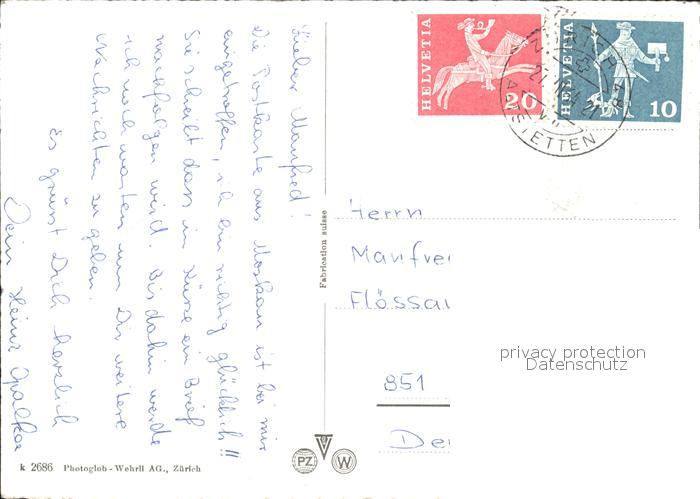 HELVETIA
20
HELVETIA
10
ZÜRICH 48
ALTSTETTEN
Lieber Manfred!
Die Postkarte aus Moskau ist bei mir
eingetroffen, ich bin richtig glücklich!!
Sie schreibt dass in Kürze ein Brief
nachfolgen wird. Bis dahin werde
ich noch warten um Dir weitere
Nachrichten zu geben.
Es grüsst Dich herzlich
Dein Heinz Opalka
Fabrication suisse
Herrn
Manfre
Flössau
851
De
privacy protection
Datenschutz
PZ
W
k 2686 Photoglob-Wehrli AG., Zürich